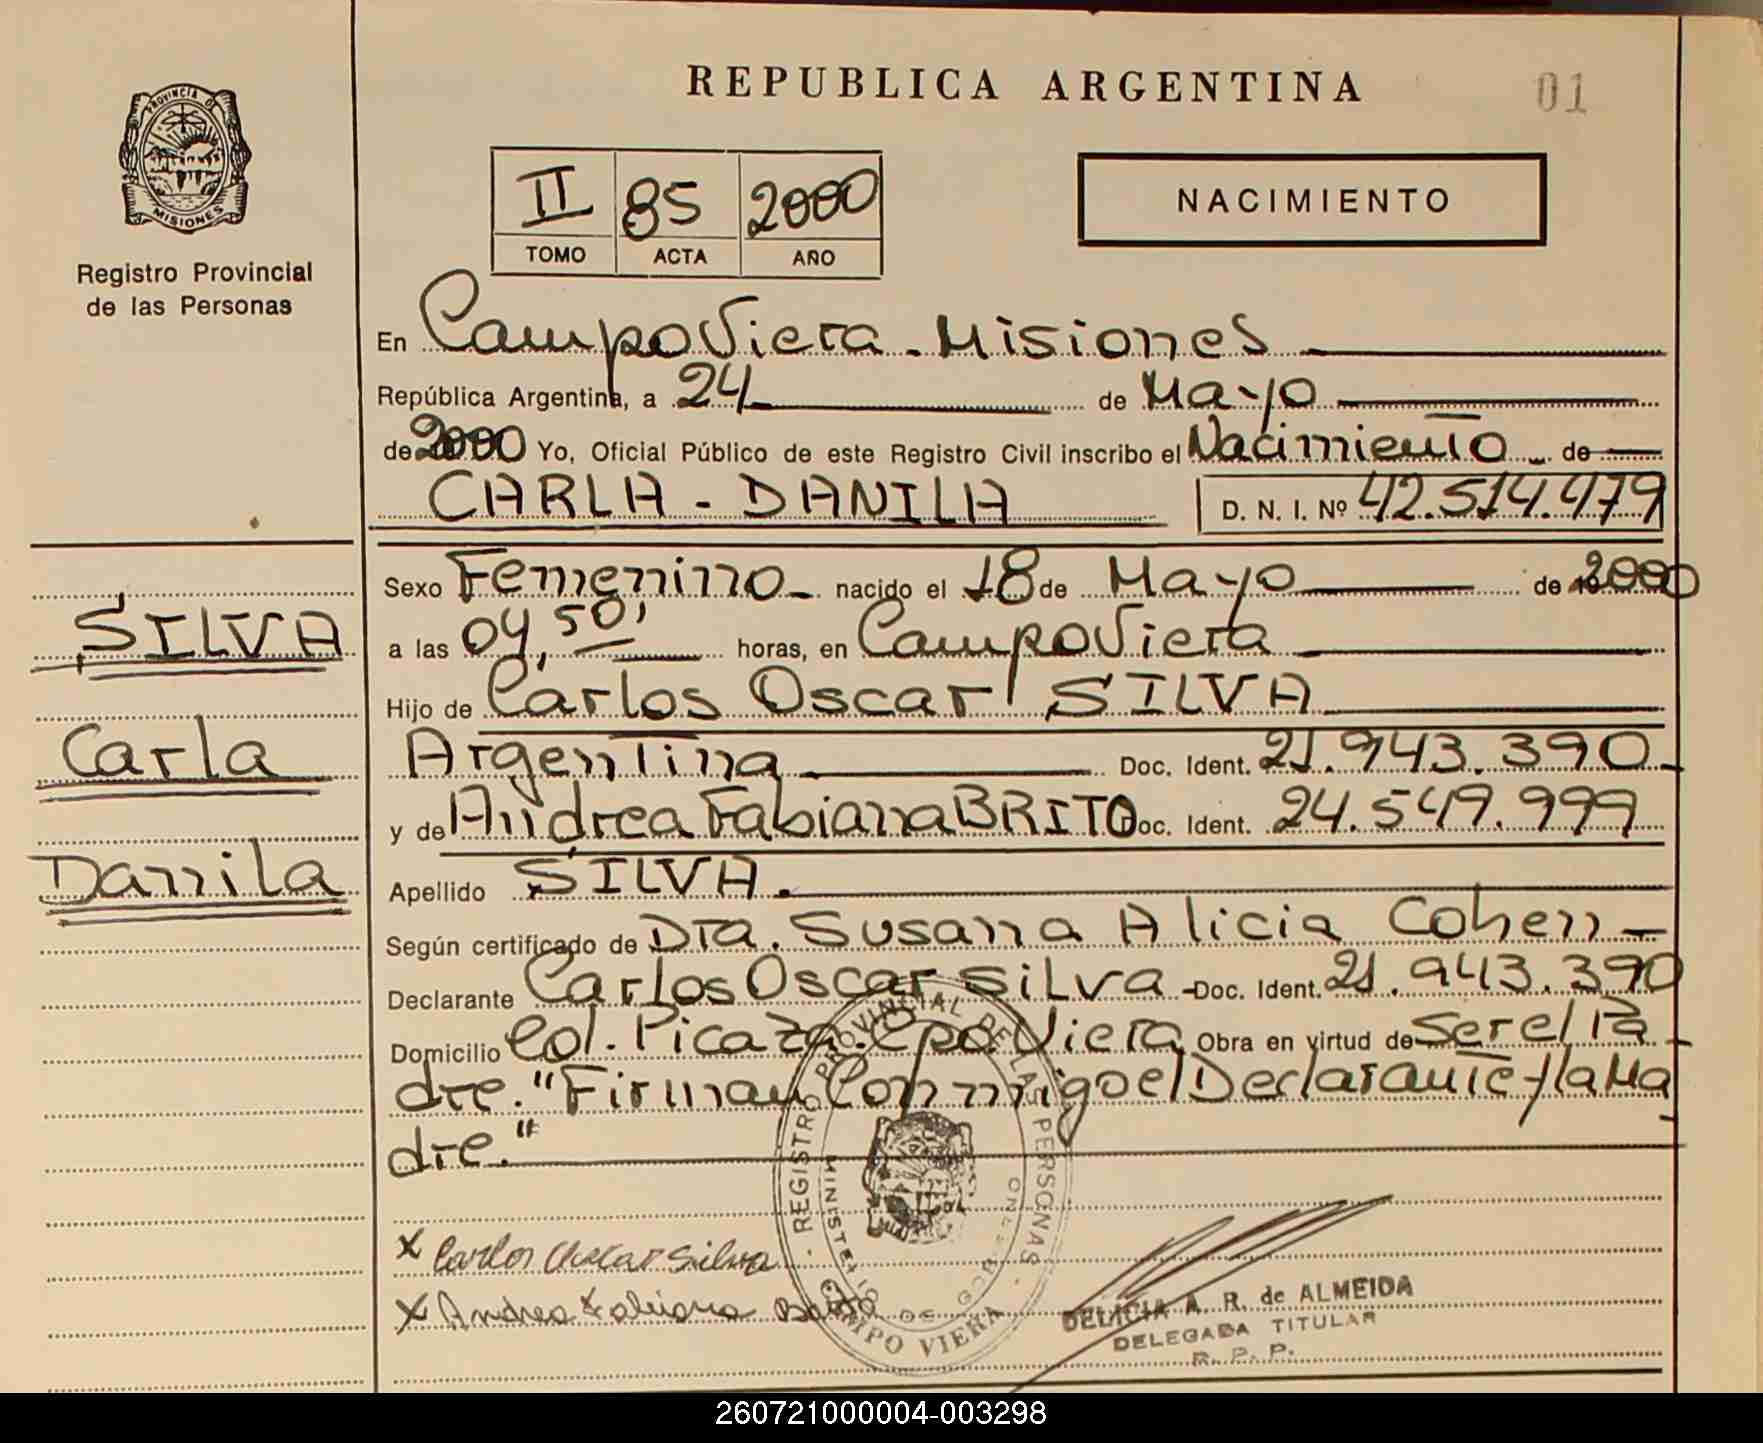 REPUBLICA ARGENTINA
01
PROVINCIA DE
MISIONES
Registro Provincial
de las Personas
II 85 2000
TOMO ACTA AÑO
NACIMIENTO
En Campo Viera - Misiones
República Argentina, a 24 de Mayo
de 2000 Yo, Oficial Público de este Registro Civil inscribo el Nacimiento de
CARLA - DANILA D. N. I. Nº 42.514.479
Sexo Femenino nacido el 18 de Mayo de 2000
a las 04,50' horas, en Campo Viera
Hijo de Carlos Oscar SILVA
Argentina Doc. Ident. 21.943.390
y de Andrea Fabiana BRITO Doc. Ident. 24.549.999
Apellido SILVA.
Según certificado de Dra. Susana Alicia Cohen
Declarante Carlos Oscar Silva Doc. Ident. 21.943.390
Domicilio Col. Picaza. Cpo. Viera Obra en virtud de Ser el Pa
dre. "Firman Conmigo el Declarante y la Ma
dre."
SILVA
Carla
Danila
x Carlos Oscar Silva
x Andrea Fabiana Brito
REGISTRO PROVINCIAL DE LAS PERSONAS
MINISTERIO DE GOBIERNO
CAMPO VIERA
DELICIA A. R. de ALMEIDA
DELEGADA TITULAR
R. P. P.
260721000004-003298